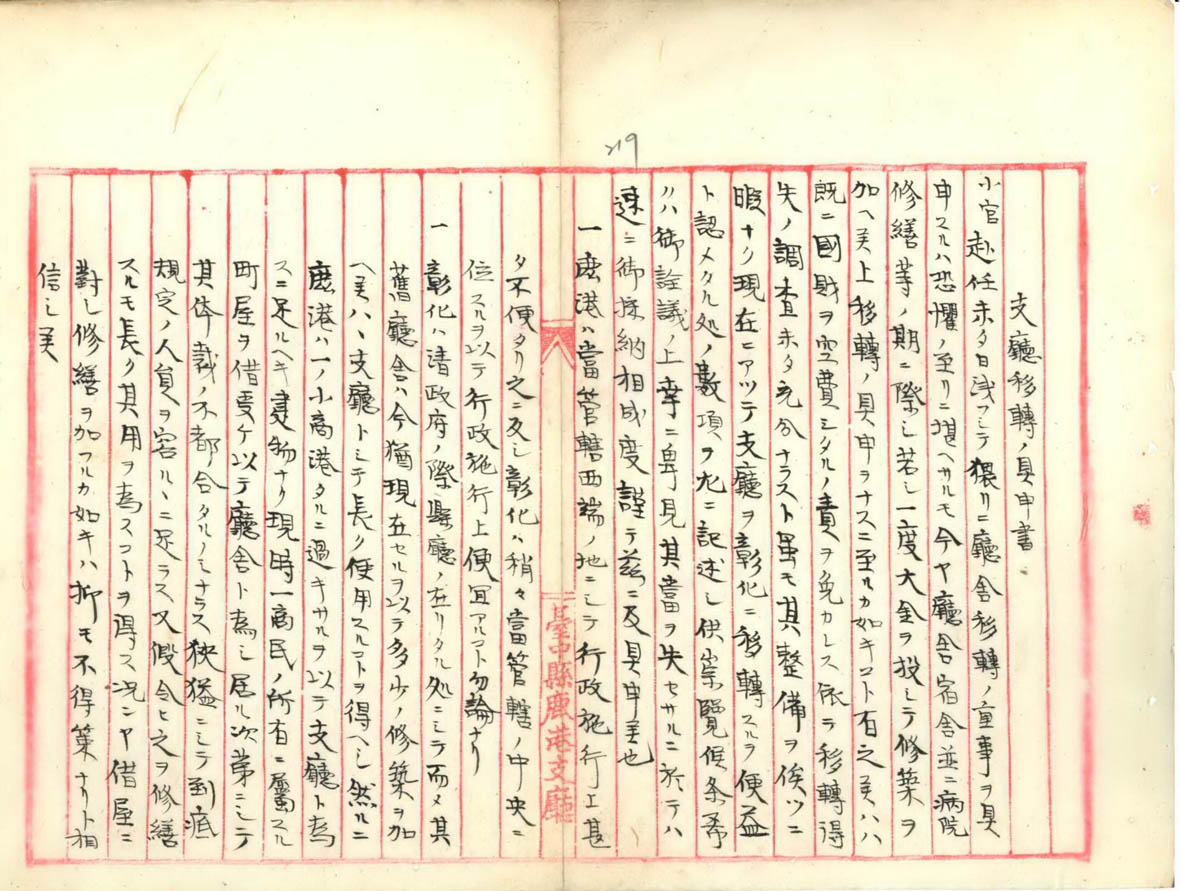 219
支廳移轉ノ具申書
小官赴任未タ日浅フシテ猥リニ廳舎移轉ノ重事ヲ具
申スルハ恐懼ノ至リニ堪ヘサルモ今ヤ廳舎宿舎並ニ病院
修繕等ノ期ニ際シ若シ一度大金ヲ投シテ修築ヲ
加ヘ美上移轉ノ具申ヲナスニ至ルカ如キコト有之美ハハ
既ニ國財ヲ空費シタルノ責ヲ免カレス依テ移轉得
失ノ調査未タ充分ナラスト虽モ其整備ヲ俟ツニ
暇ナク現在ニアツテ支廳ヲ彰化ニ移轉スルヲ便益
ト認メタル処ノ数項ヲ左ニ記述シ供崇覧候条希
クハ御詮議ノ上幸ニ卑見其當ヲ失セサルニ於テハ
速ニ御採納相成度謹テ茲ニ及具申美也
一鹿港ハ當管轄西端ノ地ニシテ行政施行上甚
臺中縣鹿港支廳
タ不便タリ之ニ反シ彰化ハ稍々當管轄ノ中央ニ
位スルヲ以テ行政施行上便宜アルコト勿論ナリ
一彰化ハ清政府ノ際縣廳ノ在リタル処ニシテ而メ其
舊廳舎ハ今猶現在セルヲ以テ多少ノ修築ヲ加
ヘ美ハヽ支廳トシテ長ク使用スルコトヲ得ヘシ然ルニ
鹿港ハ一ノ小商港タルニ過キサルヲ以テ支廳ト為
スニ足ルヘキ建物ナク現時一商民ノ所有ニ屬スル
町屋ヲ借受ケ以テ廳舎ト為シ居ル次第ニシテ
其体裁ノ不都合タルノミナラス狭猛ニシテ到底
規定ノ人員ヲ容ルヽニ足ラス又假令ヒ之ヲ修繕
スルモ長ク其用ヲ為スコトヲ得ス况ンヤ借屋ニ
對シ修繕ヲ加フルカ如キハ抑モ不得策ナリト相
信シ美